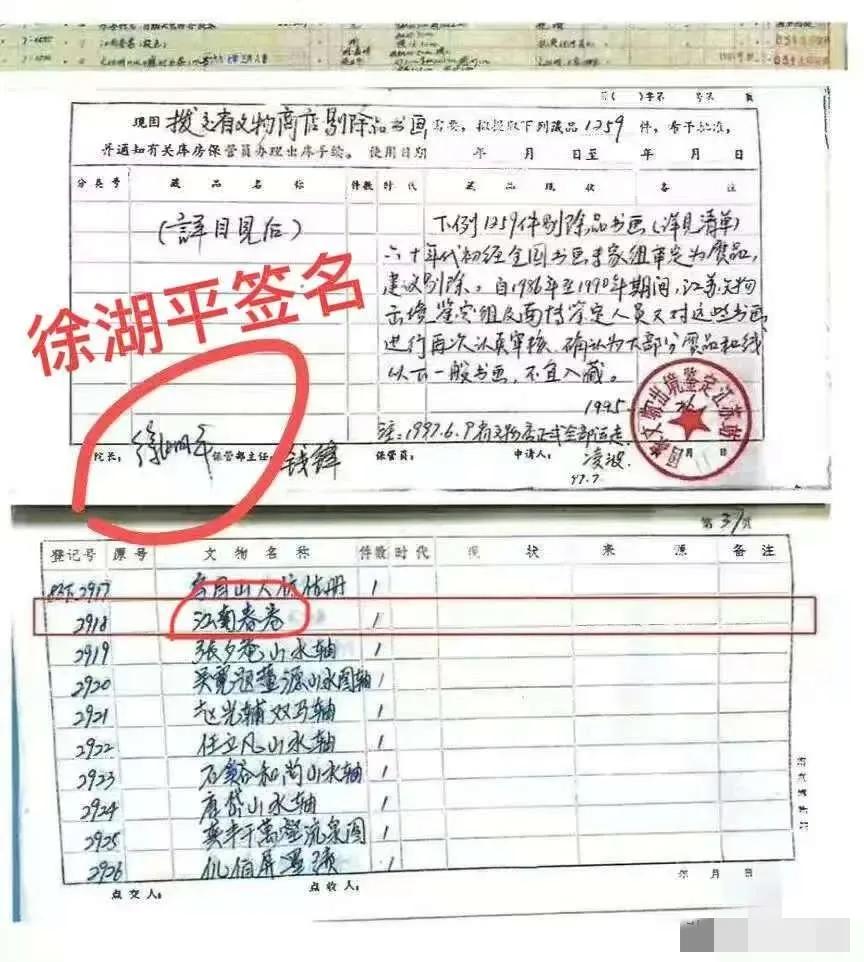 第( )字第 号第 页
现因 拨交省文物商店剔除品书画 需要,拟提取下列藏品1259件,希予批准,
并通知有关库房保管员办理出库手续。 使用日期 年 月 日至 年 月 日
分类号 藏品名称 件数 时代 藏品现状 备注
(詳目見后)
下例1259件剔除品书画(详见清单)
六十年代初经全国书画专家组审定为赝品,
建议剔除。自1986年至1990年期间,江苏文物
出境鉴定组及南博鉴定人员又对这些书画
进行再次认真审核,确认为大部分赝品和线
以下一般书画,不宜入藏。
徐湖平签名
1995
月 日
国家文物出境鉴定江苏站
注:1997.6.9省文物店正式全部运走
院长: 徐湖平 保管部主任: 钱锋 保管员: 申请人: 凌波
97.7.
第 37 页
登记号 源号 文物名称 件数 时代 现状 来源 备注
2917 1
2918 江南春卷 1
2919 張夕菴山水轴 1
2920 吴寬題董源山水图轴 1
2921 赵光辅双马轴 1
2922 任立凡山水轴 1
2923 石溪和尚山水轴 1
2924 唐岱山水轴 1
2925 萬壑流泉图 1
2926 1
点交人: 点收人: 年 月 日